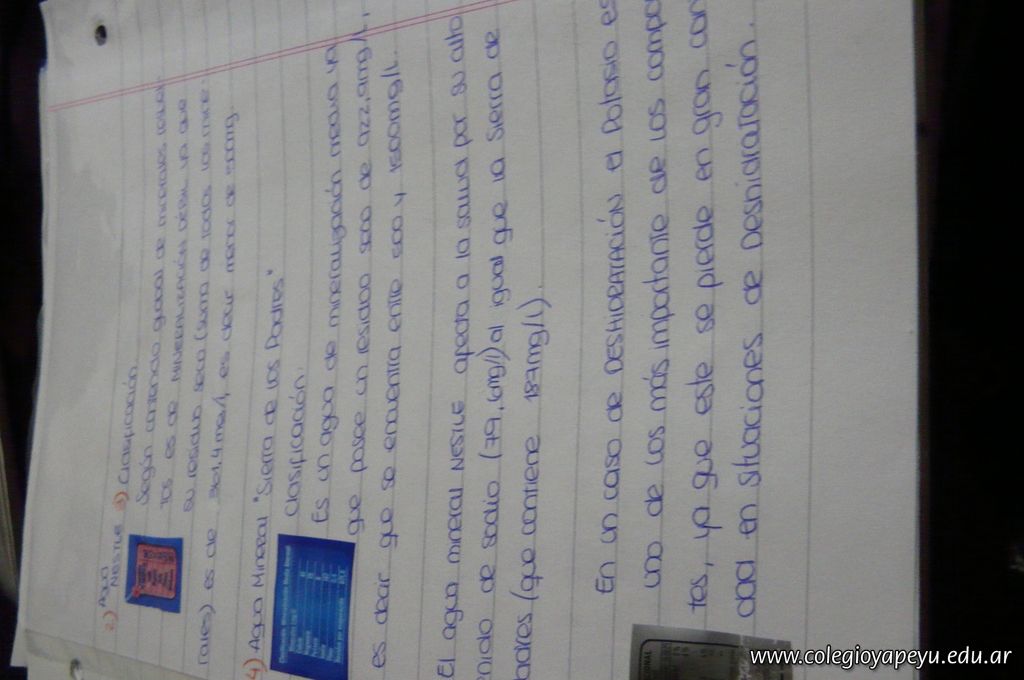 2) Agua
NESTLE
3) Clasificación.
Según contenido global de minerales
es de MINERALIZACIÓN DÉBIL ya que
su residuo seco (suma de todos los mine
rales) es de mg/l, es decir menor de 500mg.
4) Agua Mineral "Sierra de los Padres"
Clasificación.
Es un agua de mineralización media ya
que posee un residuo seco de 922,9mg/l,
es decir que se encuentra entre 500 y 1500mg/l.
El agua mineral NESTLE afecta a la salud por su alto
enido de sodio (79,6mg/l) al igual que la Sierra de
adres (que contiene 187mg/l).
En un caso de DESHIDRATACIÓN el Potasio es
uno de los más importante de los compo
tes, ya que este se pierde en gran can
dad en situaciones de Deshidratación.
www.colegioyapeyu.edu.ar